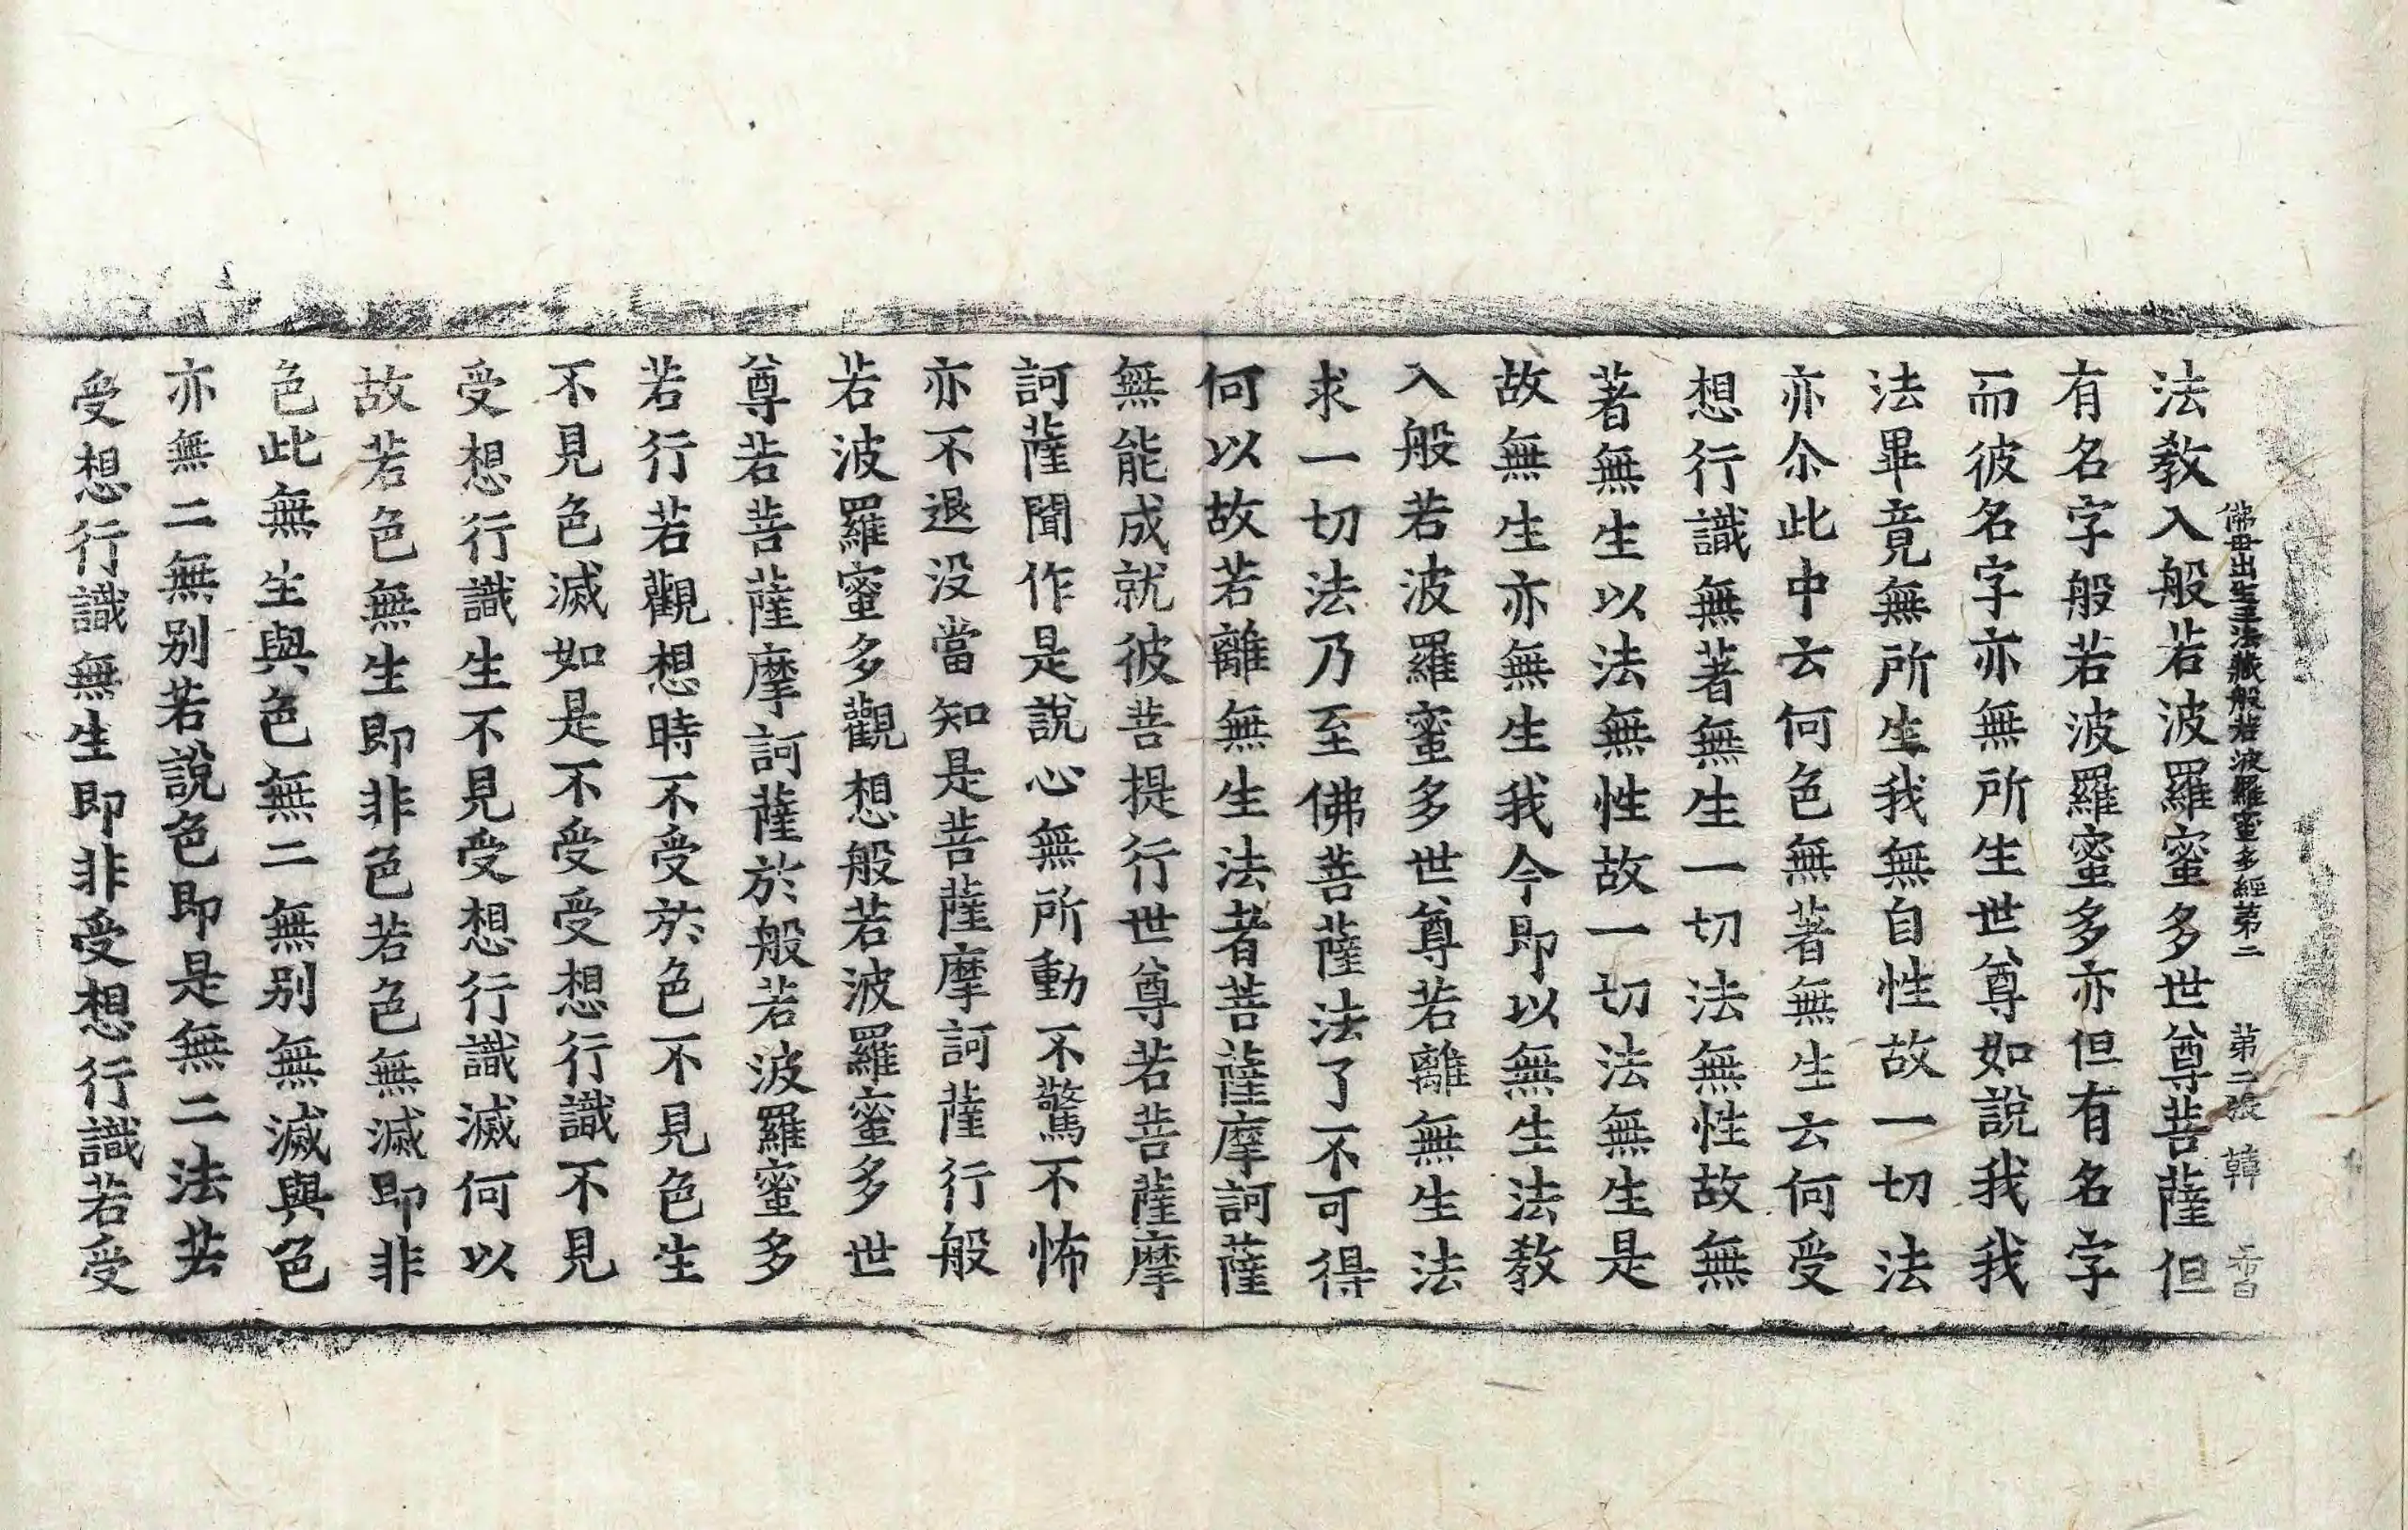 佛母出生三法藏般若波羅蜜多經第二 第二張 韓
法教入般若波羅蜜多世尊菩薩但
有名字般若波羅蜜多亦但有名字
而彼名字亦無所生世尊如說我我
法畢竟無所生我無自性故一切法
亦尒此中云何色無著無生云何受
想行識無著無生一切法無性故無
著無生以法無性故一切法無生是
故無生亦無生我今即以無生法教
入般若波羅蜜多世尊若離無生法
求一切法乃至佛菩薩法了不可得
何以故若離無生法者菩薩摩訶薩
無能成就彼菩提行世尊若菩薩摩
訶薩聞作是說心無所動不驚不怖
亦不退没當知是菩薩摩訶薩行般
若波羅蜜多觀想般若波羅蜜多世
尊若菩薩摩訶薩於般若波羅蜜多
若行若觀想時不受於色不見色生
不見色滅如是不受受想行識不見
受想行識生不見受想行識滅何以
故若色無生即非色若色無滅即非
色此無生與色無二無別無滅與色
亦無二無別若說色即是無二法若
受想行識無生即非受想行識若受